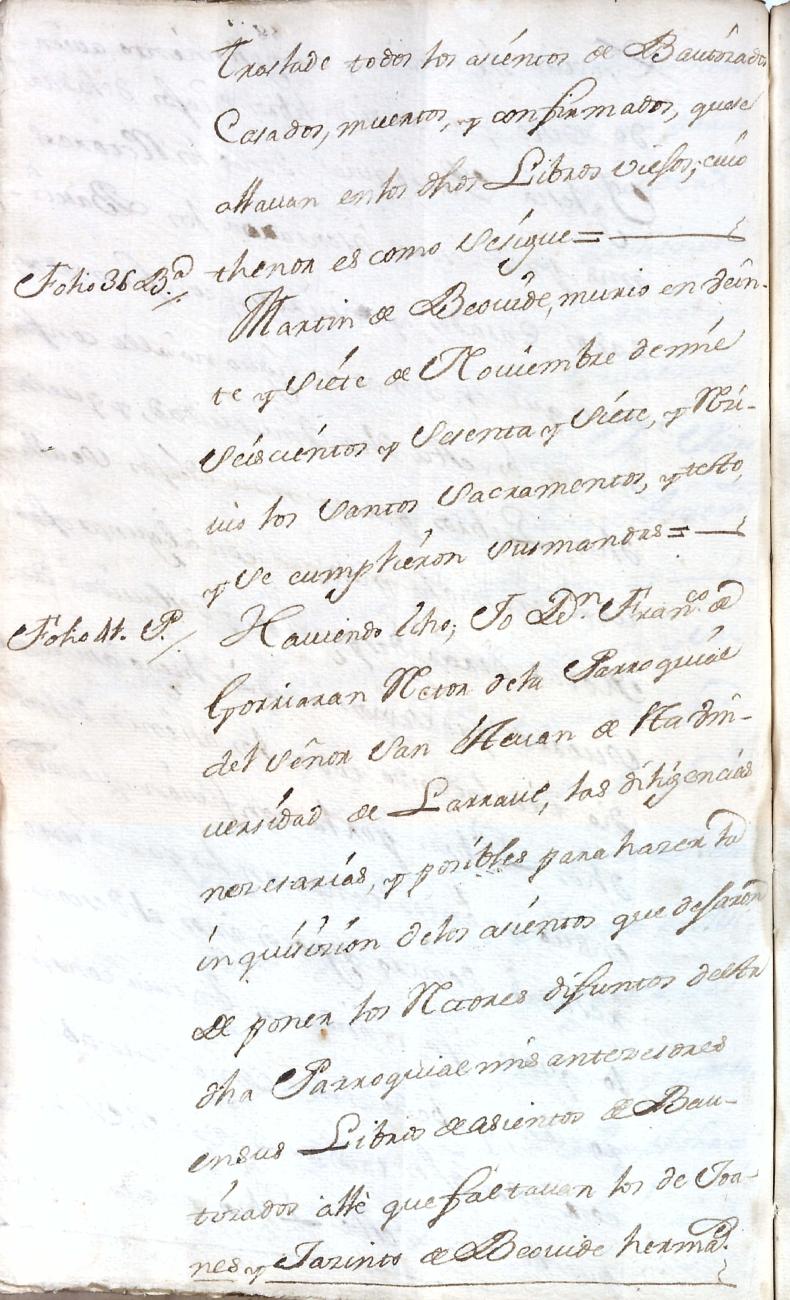 traslade todos los asientos de Bautizados
Casados, muertos, y confirmados, que se
allauan en los dhos Libros viejos; cuio
thenor es como se sigue =
Folio 36 B.ª
Martin de Beovide, murio en vein-
te y siete de Noviembre de mil
seiscientos y sesenta y siete, y Rezi-
uio los santos sacramentos, y testo,
y se cumplieron sus mandas =
Folio 41. P.
Haviendo echo; Io Dn. Franco. de
Gorriaran Retor de la Parroquial
del señor san Esteuan de la Vni-
versidad de Larraul, las diligencias
nezesarias, y posibles para hazer la
inquisizion de los asientos que dejaron
de poner los Retores difuntos de esta
dha Parroquial mis antezesores
en sus Libros de asientos de Bau-
tizados allè que faltauan los de Joa-
nes y Jazinto de Beovide herma.